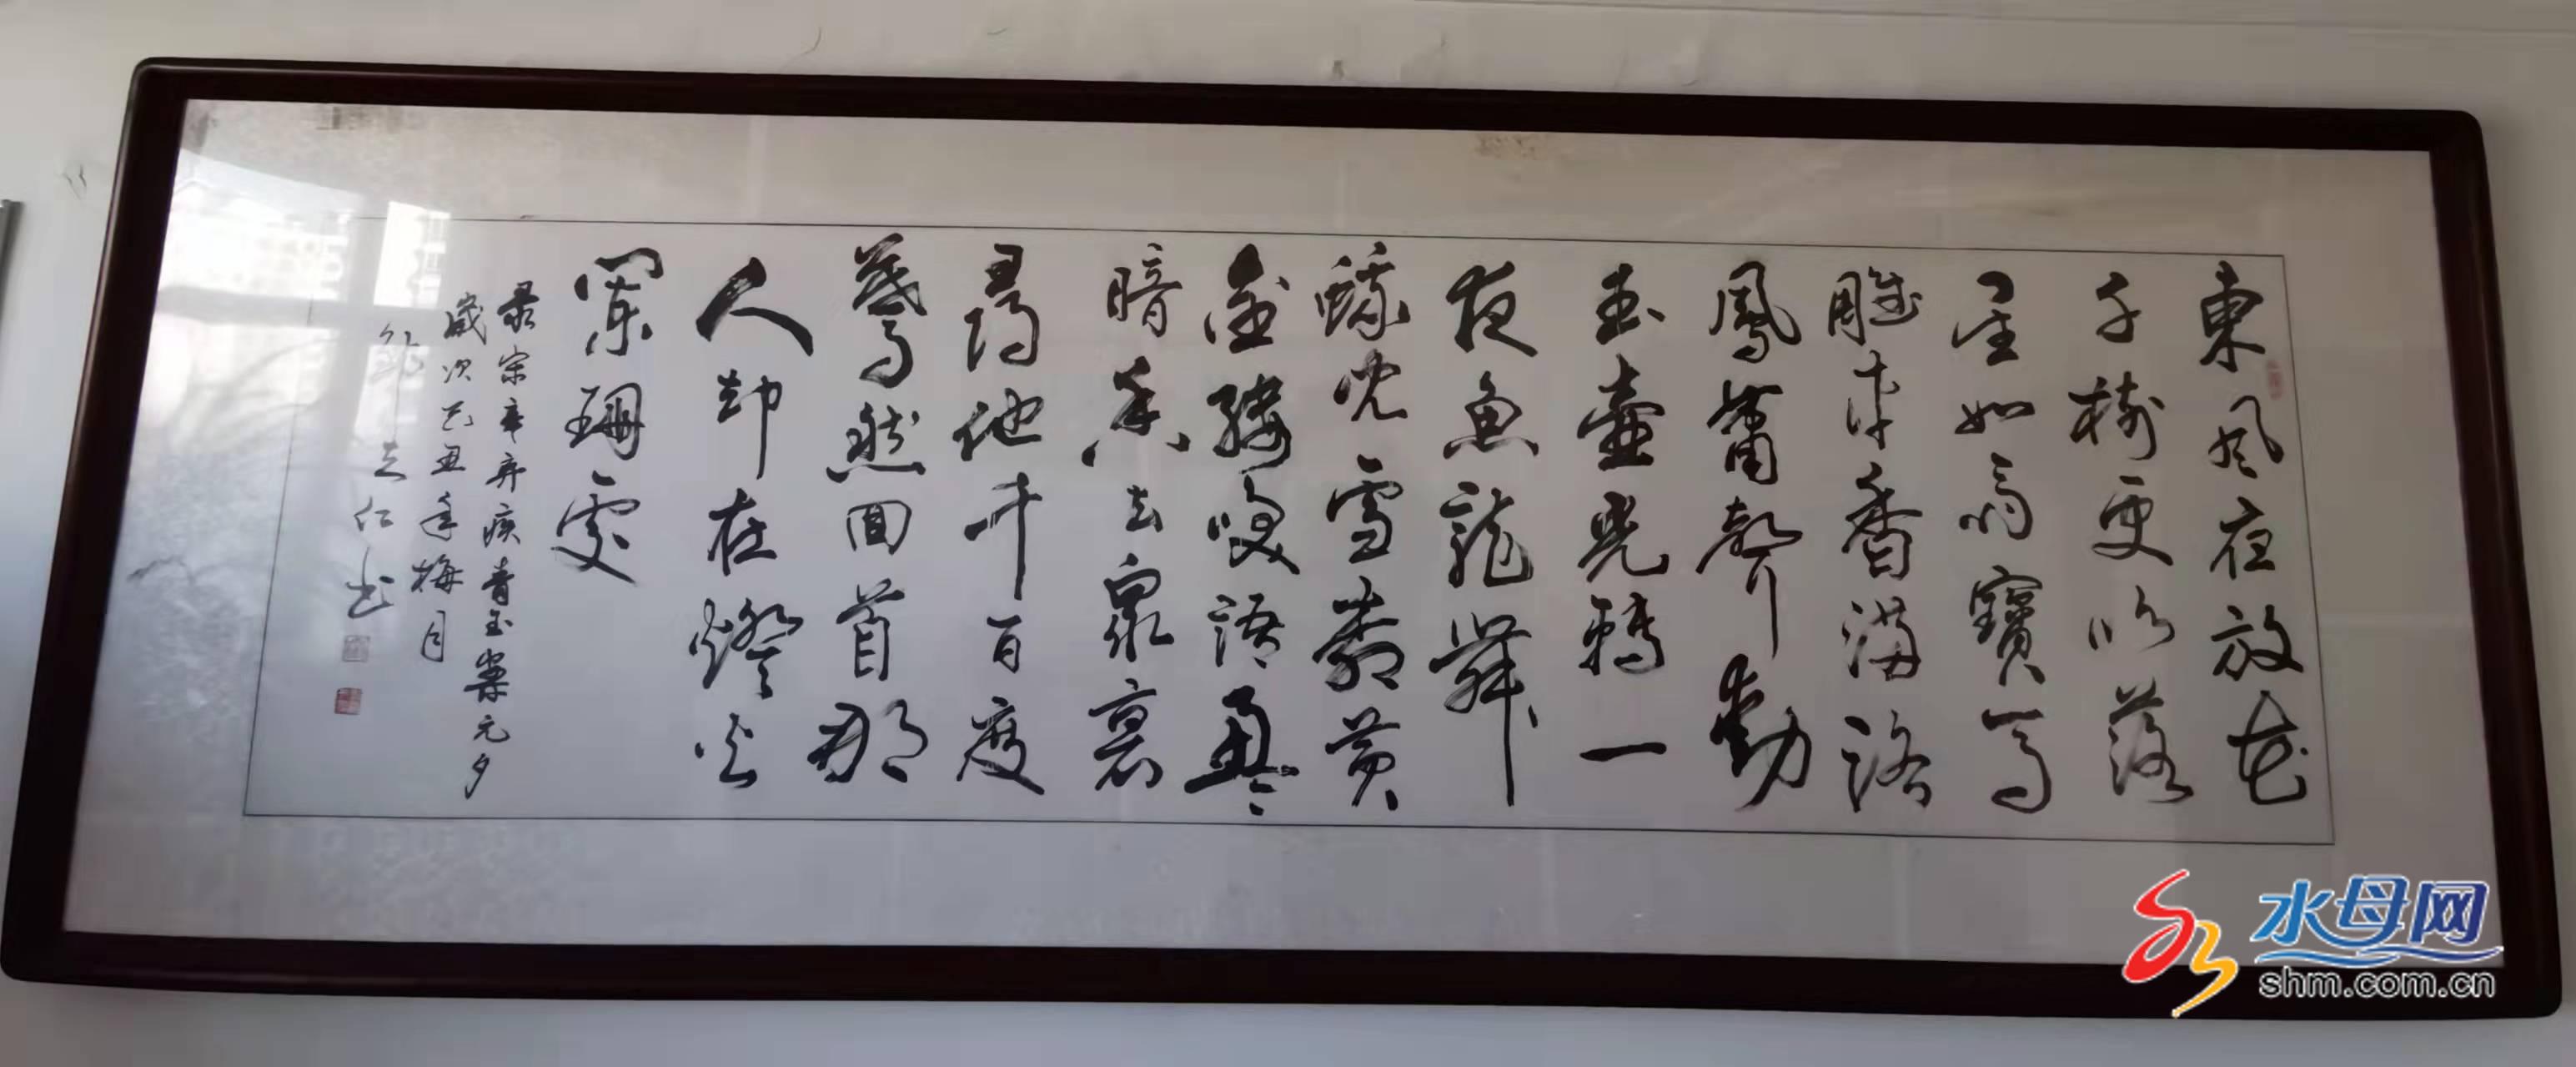 東風夜放花
千樹更吹落
星如雨寶馬
雕車香滿路
鳳簫聲動
玉壺光轉一
夜魚龍舞
蛾兒雪柳黃
金縷笑語盈々
暗香去衆裏
尋他千百度
驀然回首那
人却在燈火
闌珊處
录宋辛弃疾青玉案元夕
歲次己丑年梅月
仁书
水母网
shm.com.cn